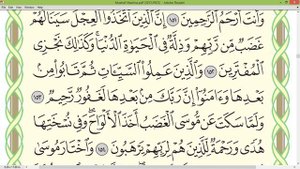 وَأَنتَ أَرْحَمُ ٱلرَّٰحِمِينَ ١٥١ إِنَّ ٱلَّذِينَ ٱتَّخَذُوا۟ ٱلْعِجْلَ سَيَنَالُهُمْ
غَضَبٌ مِّن رَّبِّهِمْ وَذِلَّةٌ فِى ٱلْحَيَوٰةِ ٱلدُّنْيَا وَكَذَٰلِكَ نَجْزِى
ٱلْمُفْتَرِينَ ١٥٢ وَٱلَّذِينَ عَمِلُوا۟ ٱلسَّيِّـَٔاتِ ثُمَّ تَابُوا۟ مِنۢ
بَعْدِهَا وَءَامَنُوٓا۟ إِنَّ رَبَّكَ مِنۢ بَعْدِهَا لَغَفُورٌ رَّحِيمٌ ١٥٣
وَلَمَّا سَكَتَ عَن مُّوسَى ٱلْغَضَبُ أَخَذَ ٱلْأَلْوَاحَ وَفِى نُسْخَتِهَا
هُدًى وَرَحْمَةٌ لِّلَّذِينَ هُمْ لِرَبِّهِمْ يَرْهَبُونَ ١٥٤ وَٱخْتَارَ مُوسَىٰ